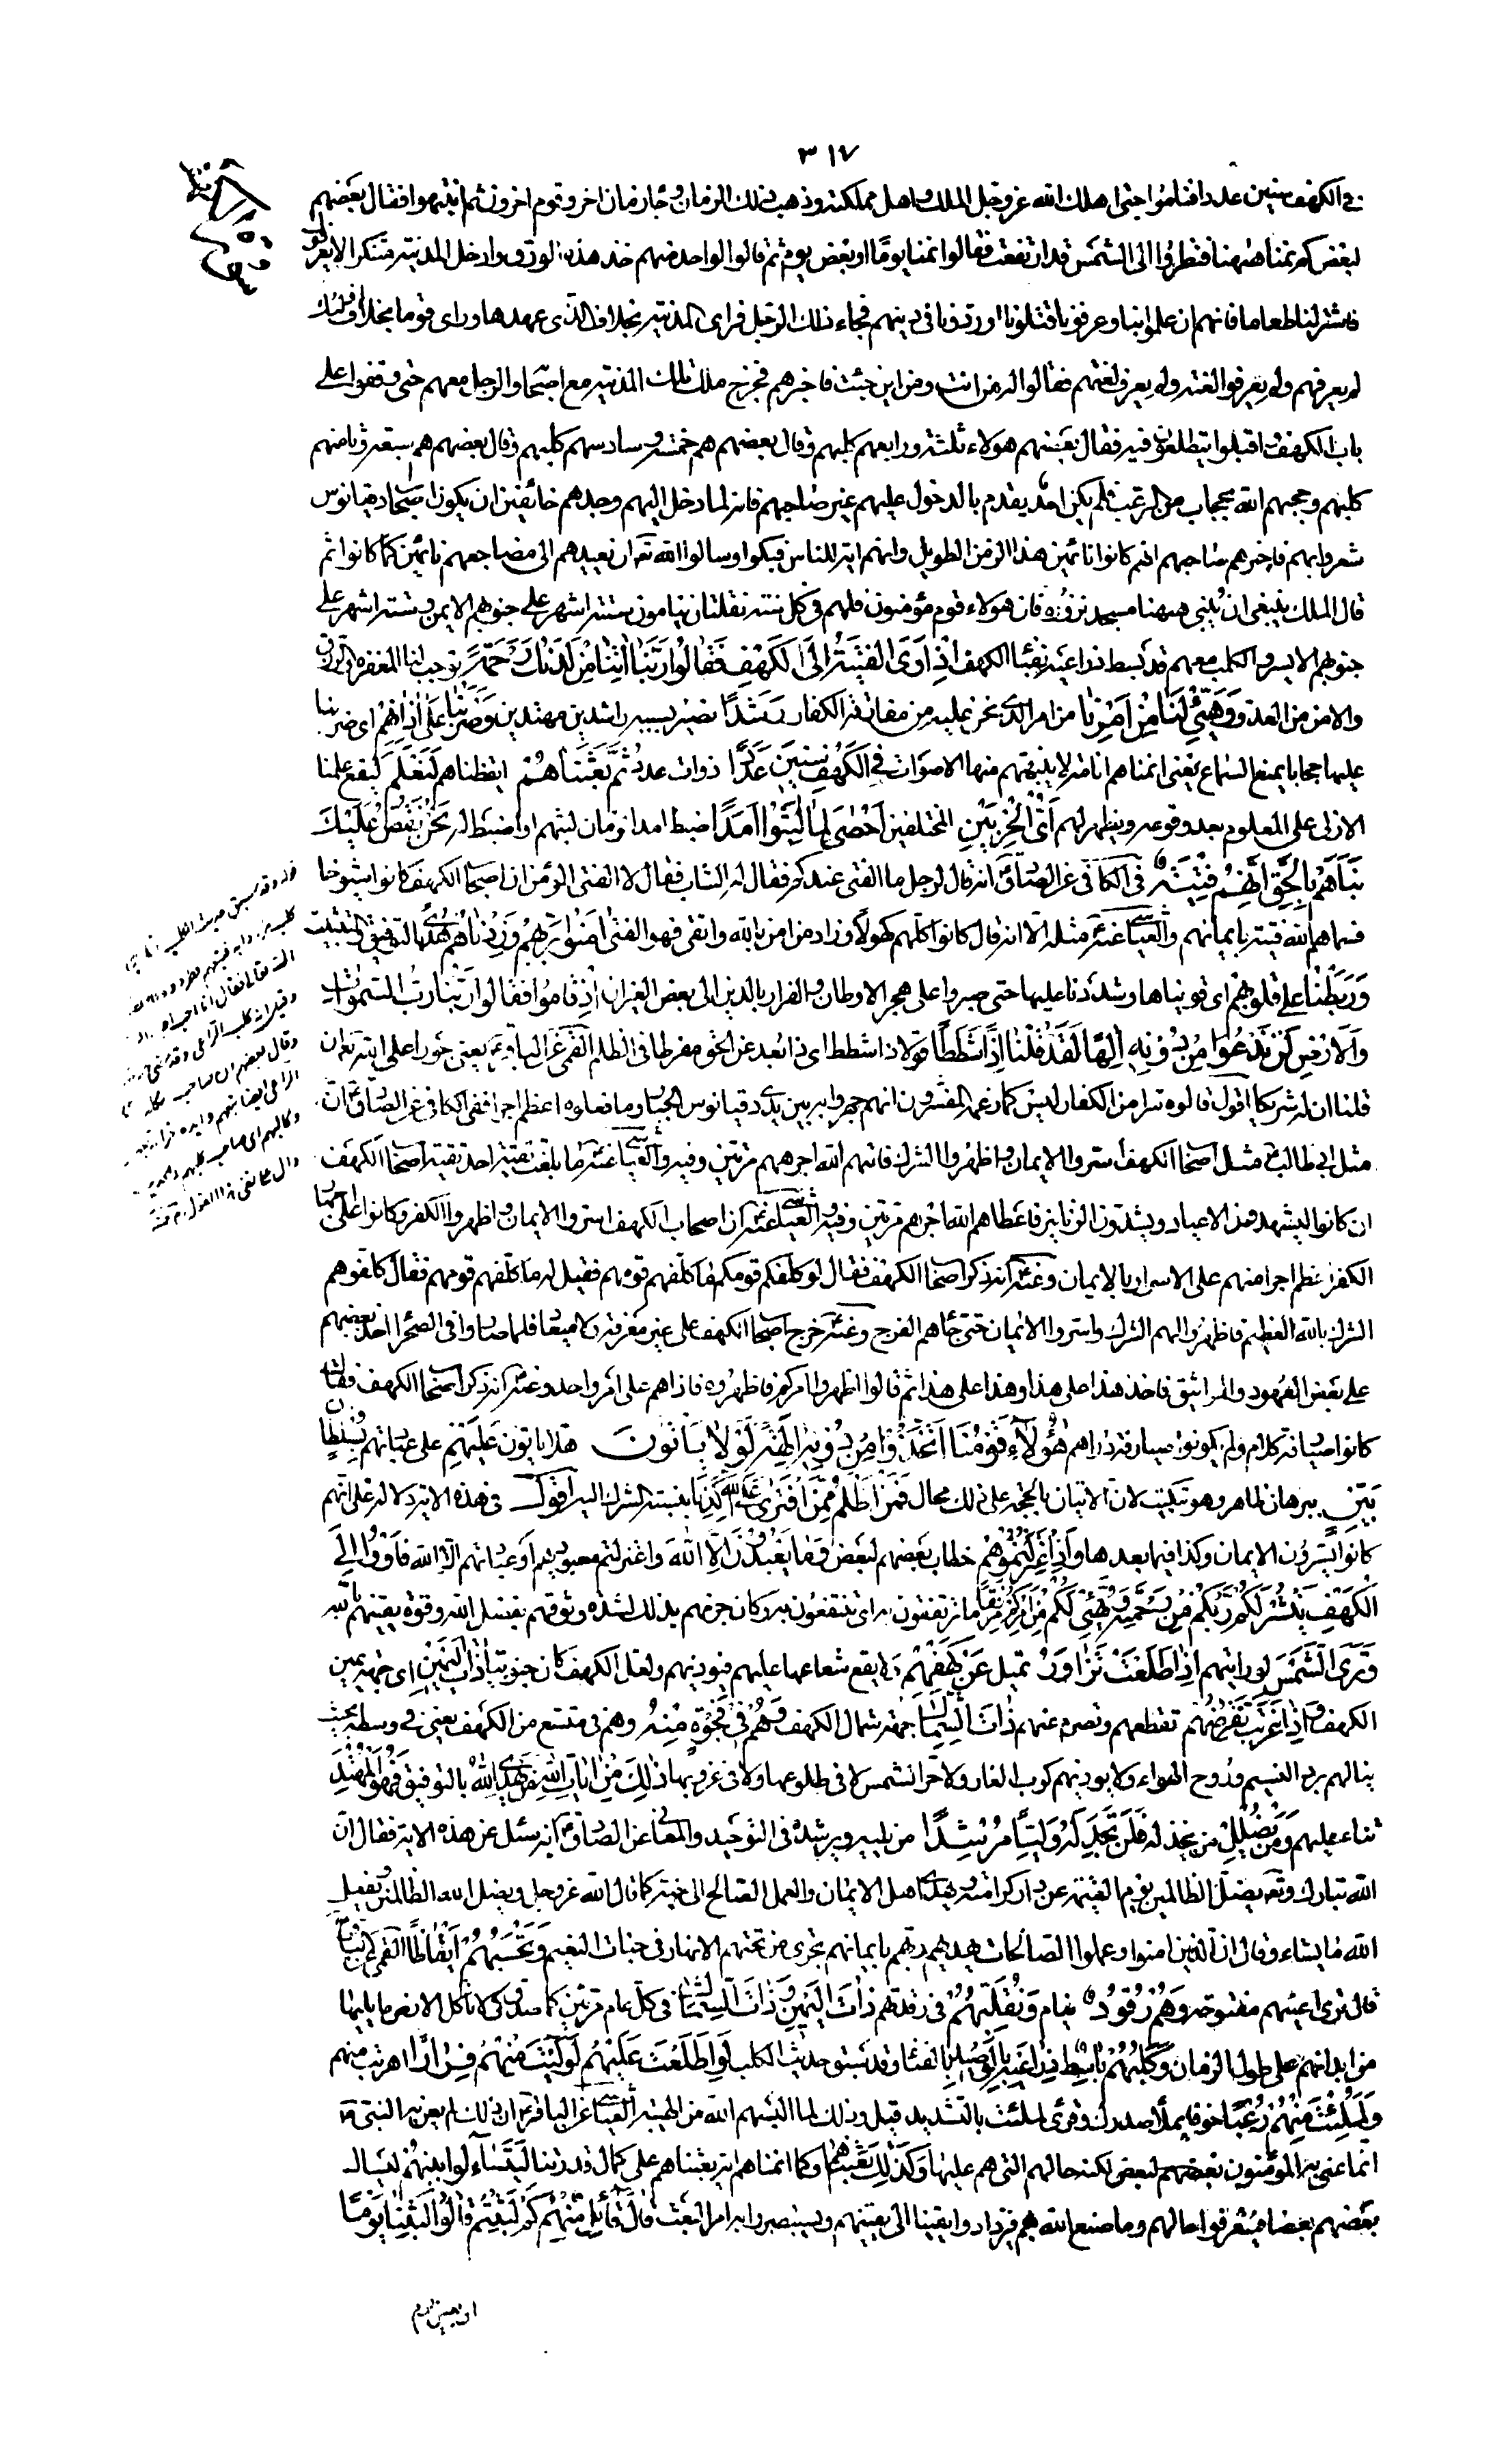 ٣١٧
في الكهف سنين عددا فناموا حتى اهلك الله عز وجل الملك واهل مملكته وذهب ذلك الزمان وجاء زمان اخر وقوم اخرون ثم انتبهوا فقال بعضهم
لبعض كم نمنا هٰهنا فنظروا الى الشمس قد ارتفعت فقالوا نمنا يومًا او بعض يوم ثم قالوا لواحد منهم خذ هذه الورق وادخل المدينة متنكرا لا يعرفوك
فاشتر لنا طعاما فانهم ان علموا بنا وعرفونا قتلونا او ردّونا في دينهم فجاء ذلك الرجل فراى المدينة بخلاف الذي عهدها وراى قوما بخلاف اولئك
لم يعرفهم ولم يعرفوا لغته ولم يعرف لغتهم فقالوا له من انت ومن اين جئت فاخبرهم فخرج ملك تلك المدينة مع اصحابه والرجل معهم حتى وقفوا على
باب الكهف واقبلوا يتطلعون فيه فقال بعضهم هولاء ثلثة ورابعهم كلبهم وقال بعضهم هم خمسة وسادسهم كلبهم وقال بعضهم هم سبعة وثامنهم
كلبهم وحجبهم الله بحجاب من الرعب فلم يكن احد يقدم بالدخول عليهم غير صاحبهم فانه لما دخل اليهم وجدهم خائفين ان يكون اصحاب دقيانوس
شعروا بهم فاخبرهم صاحبهم انهم كانوا نائمين هذا الزمن الطويل وانهم اية للناس فبكوا وسالوا الله تعالى ان يعيدهم الى مضاجعهم نائمين كما كانوا ثم
قال الملك ينبغي ان يبنى ههنا مسجد نزوره فان هولاء قوم مؤمنون فلهم في كل سنة نقلتان ينامون ستة اشهر على جنوبهم الايمن وستة اشهر على
جنوبهم الايسر والكلب معهم قد بسط ذراعيه بفناء الكهف اِذْ اَوَى الْفِتْيَةُ اِلَى الْكَهْفِ فَقَالُوا رَبَّنَا اٰتِنَا مِنْ لَدُنْكَ رَحْمَةً توجب لنا المغفرة والرزق
والامن من العدو وَهَيِّئْ لَنَا مِنْ اَمْرِنَا من امر الذي نحن عليه من مفارقة الكفار رَشَدًا نصير بسببه راشدين مهتدين فَضَرَبْنَا عَلٰى اٰذَانِهِمْ اى ضربنا
عليها حجابا يمنع السماع يعني انمناهم انامة لا ينبههم منها الاصوات فِي الْكَهْفِ سِنِينَ عَدَدًا ذوات عدد ثُمَّ بَعَثْنَاهُمْ ايقظناهم لِنَعْلَمَ ليقع علمنا
الازلى على المعلوم بعد وقوعه ويظهر لهم اَيُّ الْحِزْبَيْنِ المختلفين اَحْصٰى لِمَا لَبِثُوا اَمَدًا ضبط امدا لزمان لبثهم او اضبط له نَحْنُ نَقُصُّ عَلَيْكَ
نَبَأَهُمْ بِالْحَقِّ اِنَّهُمْ فِتْيَةٌ في الكافي عن الصادق انه قال لرجل ما الفتى عندكم فقال له الشاب فقال لا الفتى المؤمن ان اصحاب الكهف كانوا شيوخا
فسماهم الله فتية بايمانهم والعياشي عنه مثله الا انه قال كانوا كلهم كهولا وزاد من امن بالله واتقى فهو الفتى اٰمَنُوا بِرَبِّهِمْ وَزِدْنَاهُمْ هُدًى بالتوفيق والتثبيت
وَرَبَطْنَا عَلٰى قُلُوبِهِمْ اى قويناها وشددنا عليها حتى صبروا على هجر الاوطان والفرار بالدين الى بعض الغيران اِذْ قَامُوا فَقَالُوا رَبُّنَا رَبُّ السَّمٰوَاتِ
وَالْاَرْضِ لَنْ نَدْعُوَا مِنْ دُونِهِ اِلٰهًا لَقَدْ قُلْنَا اِذًا شَطَطًا قولا ذا شطط اى ذا بعد عن الحق مفرطا في الظلم القمي عن الباقر يعني جورا على الله تعالى ان
قلنا ان له شريكا اقول قالوه سرا من الكفار ليس كما زعمه المفسرون انهم جهروا به بين يدى دقيانوس الجبار وما فعلوه اعظم اجرا ففي الكافي عن الصادق ان
مثل ابي طالب مثل اصحاب الكهف اسروا الايمان واظهروا الشرك فاتاهم الله اجرهم مرتين وفيه والعياشي عنه ما بلغت تقية احد تقية اصحاب الكهف
ان كانوا ليشهدون الاعياد ويشدون الزنانير فاعطاهم الله اجرهم مرتين وفيه والعياشي عنه ان اصحاب الكهف اسروا الايمان واظهروا الكفر وكانوا على اجهار
الكفر اعظم اجرا منهم على الاسرار بالايمان وعنه انه ذكر اصحاب الكهف فقال لو كلفكم قومكم ما كلفهم قومهم فقيل له ما كلفهم قومهم فقال كلفوهم
الشرك بالله العظيم فاظهروا لهم الشرك واسروا الايمان حتى جاءهم الفرج وعنه خرج اصحاب الكهف على غير معرفة ولا ميعاد فلما صاروا في الصحراء اخذ بعضهم
على بعض العهود والمواثيق فاخذ هذا على هذا وهذا على هذا ثم قالوا اظهروا امركم فاظهروه فاذا هم على امر واحد وعنه انه ذكر اصحاب الكهف فقال
كانوا صيارفة كلام ولم يكونوا صيارفة دراهم هٰؤُلَاءِ قَوْمُنَا اتَّخَذُوا مِنْ دُونِهِ اٰلِهَةً لَوْلَا يَأْتُونَ هلا ياتون عَلَيْهِمْ على عبادتهم بِسُلْطَانٍ
بَيِّنٍ ببرهان ظاهر وهو تبكيت لان الاتيان بالحجة على ذلك محال فَمَنْ اَظْلَمُ مِمَّنِ افْتَرٰى عَلَى اللهِ كَذِبًا بنسبة الشرك اليه اقول في هذه الاية دلالة على انهم
كانوا يسرون الايمان وكذا فيما بعدها وَاِذِ اعْتَزَلْتُمُوهُمْ خطاب بعضهم لبعض وَمَا يَعْبُدُونَ اِلَّا اللهَ واعتزلتم معبوديهم او عبادتهم الا الله فَأْوُوا اِلَى
الْكَهْفِ يَنْشُرْ لَكُمْ رَبُّكُمْ مِنْ رَحْمَتِهِ وَيُهَيِّئْ لَكُمْ مِنْ اَمْرِكُمْ مِرْفَقًا ما ترتفقون به اى تنتفعون به وكان جزمهم بذلك لشدة وثوقهم بفضل الله وقوة يقينهم بالله
وَتَرَى الشَّمْسَ لو رايتهم اِذَا طَلَعَتْ تَزَاوَرُ تميل عَنْ كَهْفِهِمْ ولا يقع شعاعها عليهم فيوذيهم ولعل الكهف كان جنوبيا ذَاتَ الْيَمِينِ اى جهة يمين
الكهف وَاِذَا غَرَبَتْ تَقْرِضُهُمْ تقطعهم وتصرم عنهم ذَاتَ الشِّمَالِ جهة شمال الكهف وَهُمْ فِي فَجْوَةٍ مِنْهُ وهم في متسع من الكهف يعني في وسطه بحيث
ينالهم برد النسيم وروح الهواء ولا يوذيهم كرب الغار ولا حر الشمس لا في طلوعها ولا في غروبها ذٰلِكَ مِنْ اٰيَاتِ اللهِ مَنْ يَهْدِى اللهُ بالتوفيق فَهُوَ الْمُهْتَدِ
ثناء عليهم وَمَنْ يُضْلِلْ من يخذله فَلَنْ تَجِدَ لَهُ وَلِيًّا مُرْشِدًا من يليه ويرشده في التوحيد والمعاني عن الصادق انه سئل عن هذه الاية فقال ان
الله تبارك وتعالى يضل الظالمين يوم القيمة عن دار كرامته ويهدى اهل الايمان والعمل الصالح الى جنته كما قال الله عز وجل ويضل الله الظالمين ويفعل
الله ما يشاء وقال ان الذين امنوا وعملوا الصالحات يهديهم ربهم بايمانهم تجرى من تحتهم الانهار في جنات النعيم وَتَحْسَبُهُمْ اَيْقَاظًا القمي عن الباقر
قال ترى اعينهم مفتوحة وَهُمْ رُقُودٌ نيام وَنُقَلِّبُهُمْ في رقدتهم ذَاتَ الْيَمِينِ وَذَاتَ الشِّمَالِ في كل عام مرتين كما سبق كى لا تاكل الارض ما يليها
من ابدانهم على طول الزمان وَكَلْبُهُمْ بَاسِطٌ ذِرَاعَيْهِ بِالْوَصِيدِ بالفناء وقد سبق حديث الكلب لَوِ اطَّلَعْتَ عَلَيْهِمْ لَوَلَّيْتَ مِنْهُمْ فِرَارًا لهربت منهم
وَلَمُلِئْتَ مِنْهُمْ رُعْبًا خوفا يملا صدرك وقرئ لملئت بالتشديد قيل وذلك لما البسهم الله من الهيبة العياشي عن الباقر ان ذلك لم يعن به النبي
انما عنى به المؤمنون بعضهم لبعض لكنه حالهم التي هم عليها وَكَذٰلِكَ بَعَثْنَاهُمْ وكما انمناهم اية بعثناهم على كمال قدرتنا لِيَتَسَاءَلُوا بَيْنَهُمْ ليسال
بعضهم بعضا فيتعرفوا حالهم وما صنع الله بهم فيزدادوا يقينا الى يقينهم ويستبصروا به امر البعث قَالَ قَائِلٌ مِنْهُمْ كَمْ لَبِثْتُمْ قَالُوا لَبِثْنَا يَوْمًا